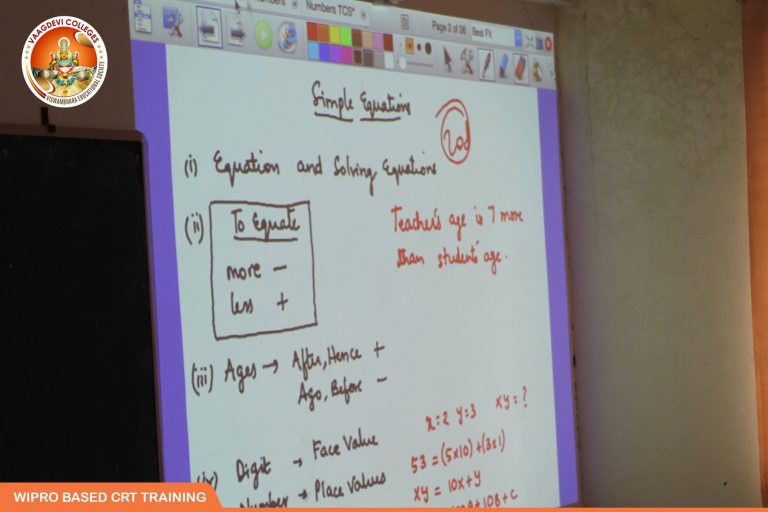 VAAGDEVI COLLEGES
VISWAMBHARA EDUCATIONAL SOCIETY
Numbers
Numbers TCS*
Page 2 of 36 Best Fit
Simple Equations
(i) Equation and Solving Equations
(ii) To Equate
more −
less +
Teacher's age is 7 more
than students' age.
(iii) Ages → After, Hence +
Ago, Before −
x=2 y=3 xy=?
(iv) Digit → Face Value
53 = (5x10)+(3x1)
Number → Place Values
xy = 10x+y
+10B+C
WIPRO BASED CRT TRAINING